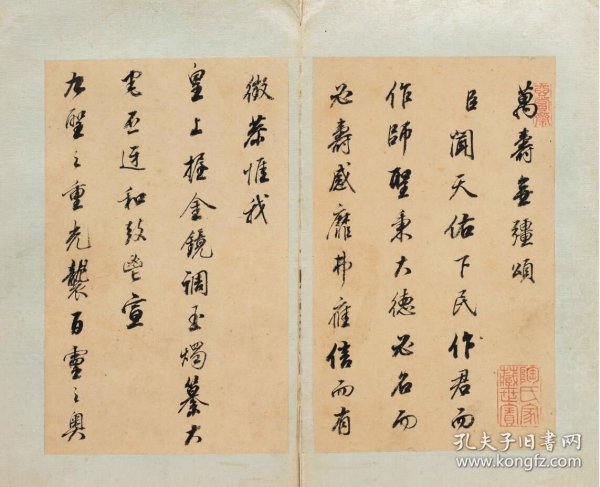 萬壽無疆頌
臣聞天佑下民作君而
作師聖秉大德必名而
必壽感靡弗應信而有
徵恭惟我
皇上握金鏡調玉燭纂大
宅丕迓和敖鬯宣
九聖之重光襲百靈之奧
陶氏家
藏世寶
孔夫子旧书网
www.kongfz.com